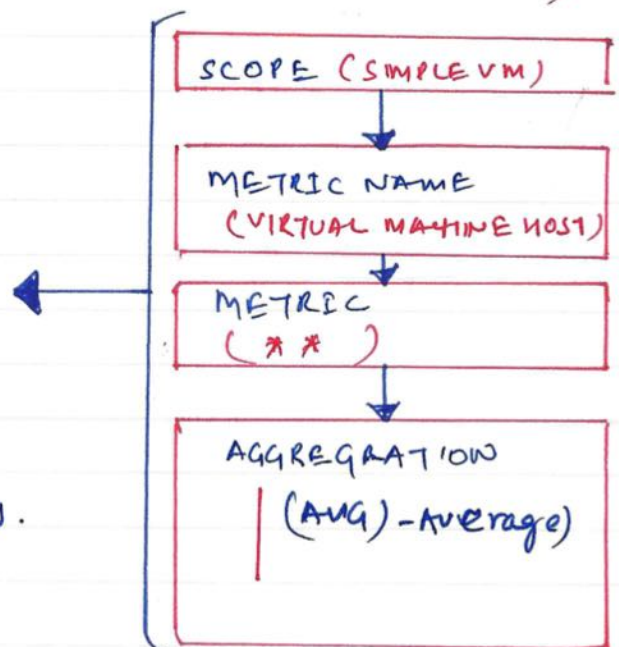 SCOPE (SIMPLE VM)
METRIC NAME
(VIRTUAL MAHINE HOST)
METRIC
( * * )
AGGREGRATION
(AVG) - Average)